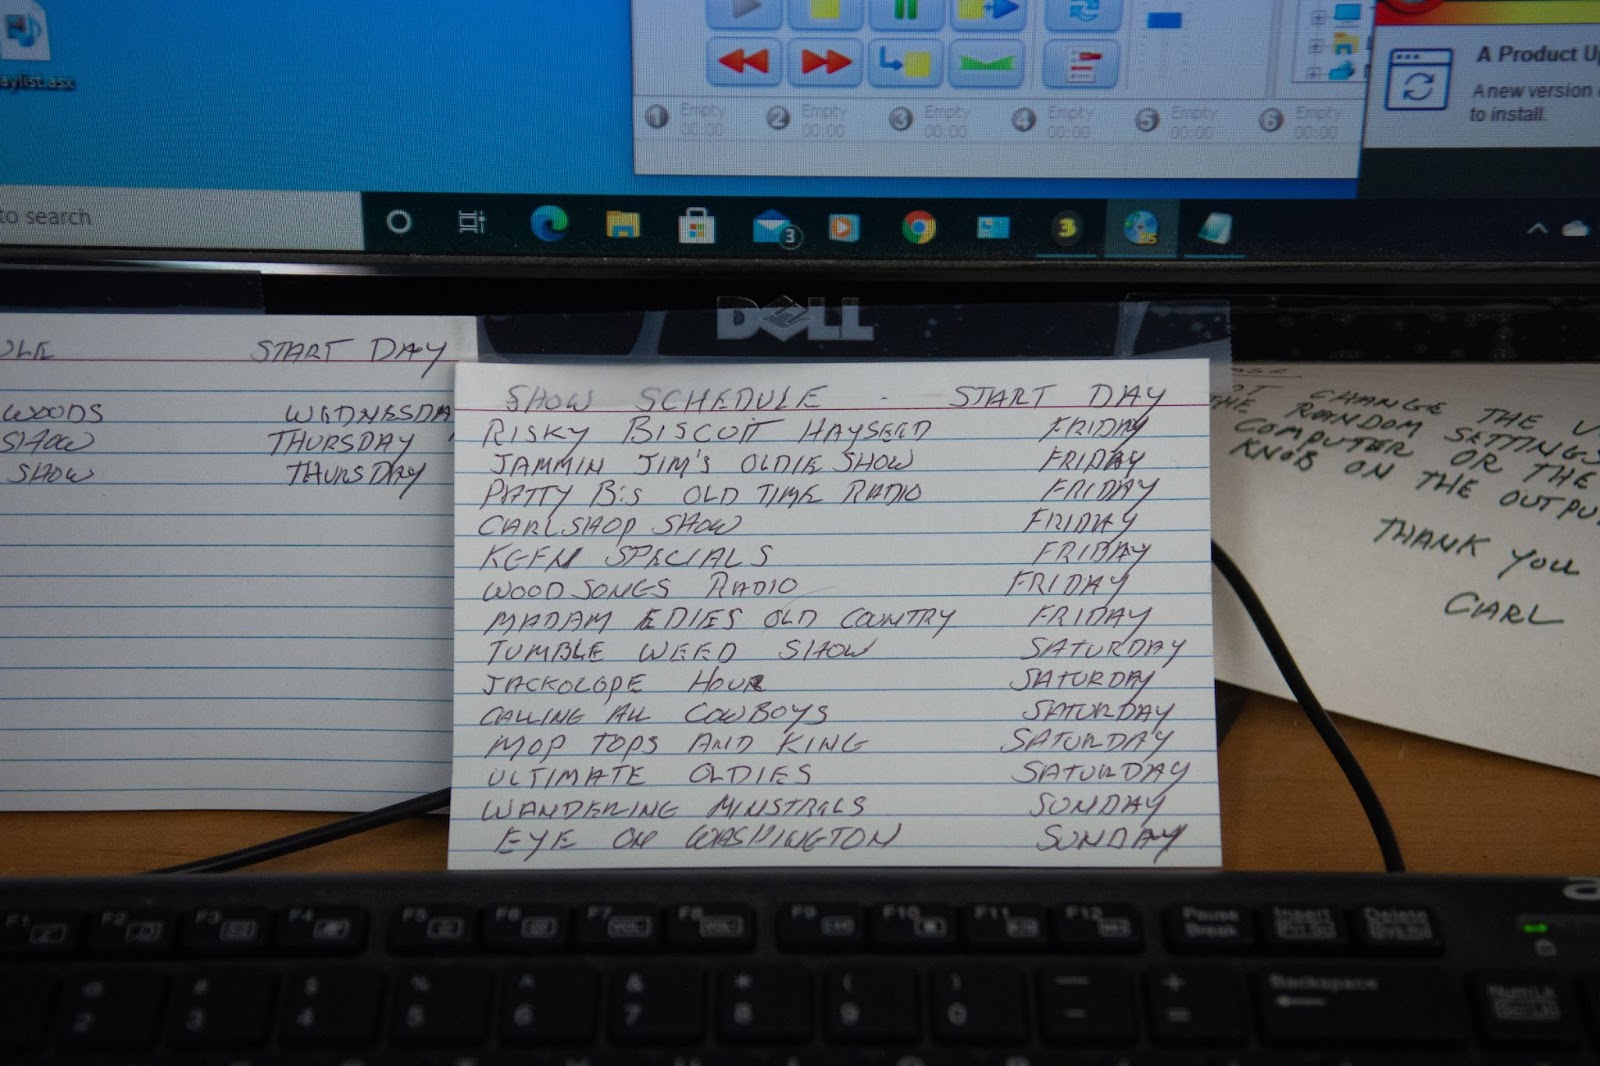 aylist.asx
1 Empty 00:00 2 Empty 00:00 3 Empty 00:00 4 Empty 00:00 5 Empty 00:00 6 Empty 00:00
A Product Up
A new version
to install.
to search
3
3
DELL
ULE START DAY
WOODS WEDNESDA
SHOW THURSDAY
SHOW THURSDAY
SHOW SCHEDULE - START DAY
RISKY BISCUIT HAYSEED FRIDAY
JAMMIN JIM'S OLDIE SHOW FRIDAY
PATTY B's OLD TIME RADIO FRIDAY
CARLSHOP SHOW FRIDAY
KGFN SPECIALS FRIDAY
WOODSONGS RADIO FRIDAY
MADAM EDIES OLD COUNTRY FRIDAY
TUMBLE WEED SHOW SATURDAY
JACKOLOPE HOUR SATURDAY
CALLING ALL COWBOYS SATURDAY
MOP TOPS AND KING SATURDAY
ULTIMATE OLDIES SATURDAY
WANDERING MINSTRELS SUNDAY
EYE ON WASHINGTON SUNDAY
CHANGE THE
THE RANDOM SETTINGS
COMPUTER OR THE
KNOB ON THE OUTPU
THANK YOU
CARL
F1 F2 F3 F4 F5 F6 F7 F8 F9 F10 F11 F12 Pause Break Insert Delete
@ # $ % ^ & * ( ) — +
2 3 4 5 6 7 8 9 0 - = Backspace NumLk